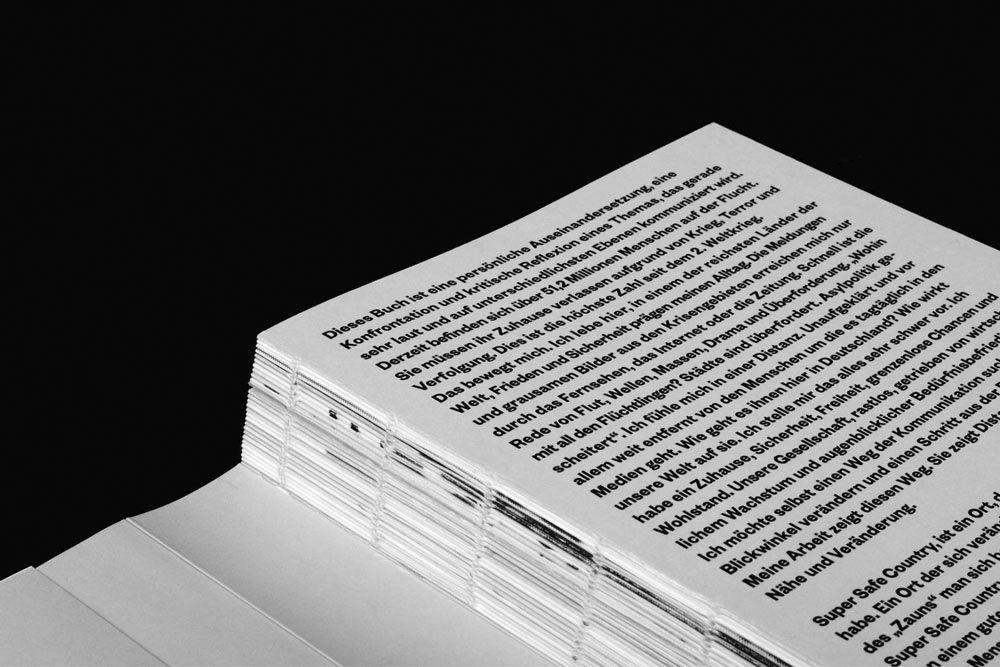 Dieses Buch ist eine persönliche Auseinandersetzung, eine
Konfrontation und kritische Reflexion eines Themas, das gerade
sehr laut und auf unterschiedlichsten Ebenen kommuniziert wird.
Derzeit befinden sich über 51,2 Millionen Menschen auf der Flucht.
Sie müssen ihr Zuhause verlassen aufgrund von Krieg, Terror und
Verfolgung. Dies ist die höchste Zahl seit dem 2. Weltkrieg.
Das bewegt mich. Ich lebe hier, in einem der reichsten Länder der
Welt, Frieden und Sicherheit prägen meinen Alltag. Die Meldungen
und grausamen Bilder aus den Krisengebieten erreichen mich nur
durch das Fernsehen, das Internet oder die Zeitung. Schnell ist die
Rede von Flut, Wellen, Massen, Drama und Überforderung. „Wohin
mit all den Flüchtlingen? Städte sind überfordert. Asylpolitik ge-
scheitert“. Ich fühle mich in einer Distanz. Unaufgeklärt und vor
allem weit entfernt von den Menschen um die es tagtäglich in den
Medien geht. Wie geht es Ihnen hier in Deutschland? Wie wirkt
unsere Welt auf sie. Ich stelle mir das alles sehr schwer vor. Ich
habe ein Zuhause, Sicherheit, Freiheit, grenzenlose Chancen und
Wohlstand. Unsere Gesellschaft, rastlos, getrieben von
lichem Wachstum und augenblicklicher
Ich möchte selbst einen Weg der Kommunikation
Blickwinkel verändern und einen Schritt aus der
Meine Arbeit zeigt diesen Weg. Sie zeigt
Nähe und Veränderung.
Super Safe Country, ist ein Ort,
habe. Ein Ort der sich
des „Zauns“ man sich
Super Safe
einem